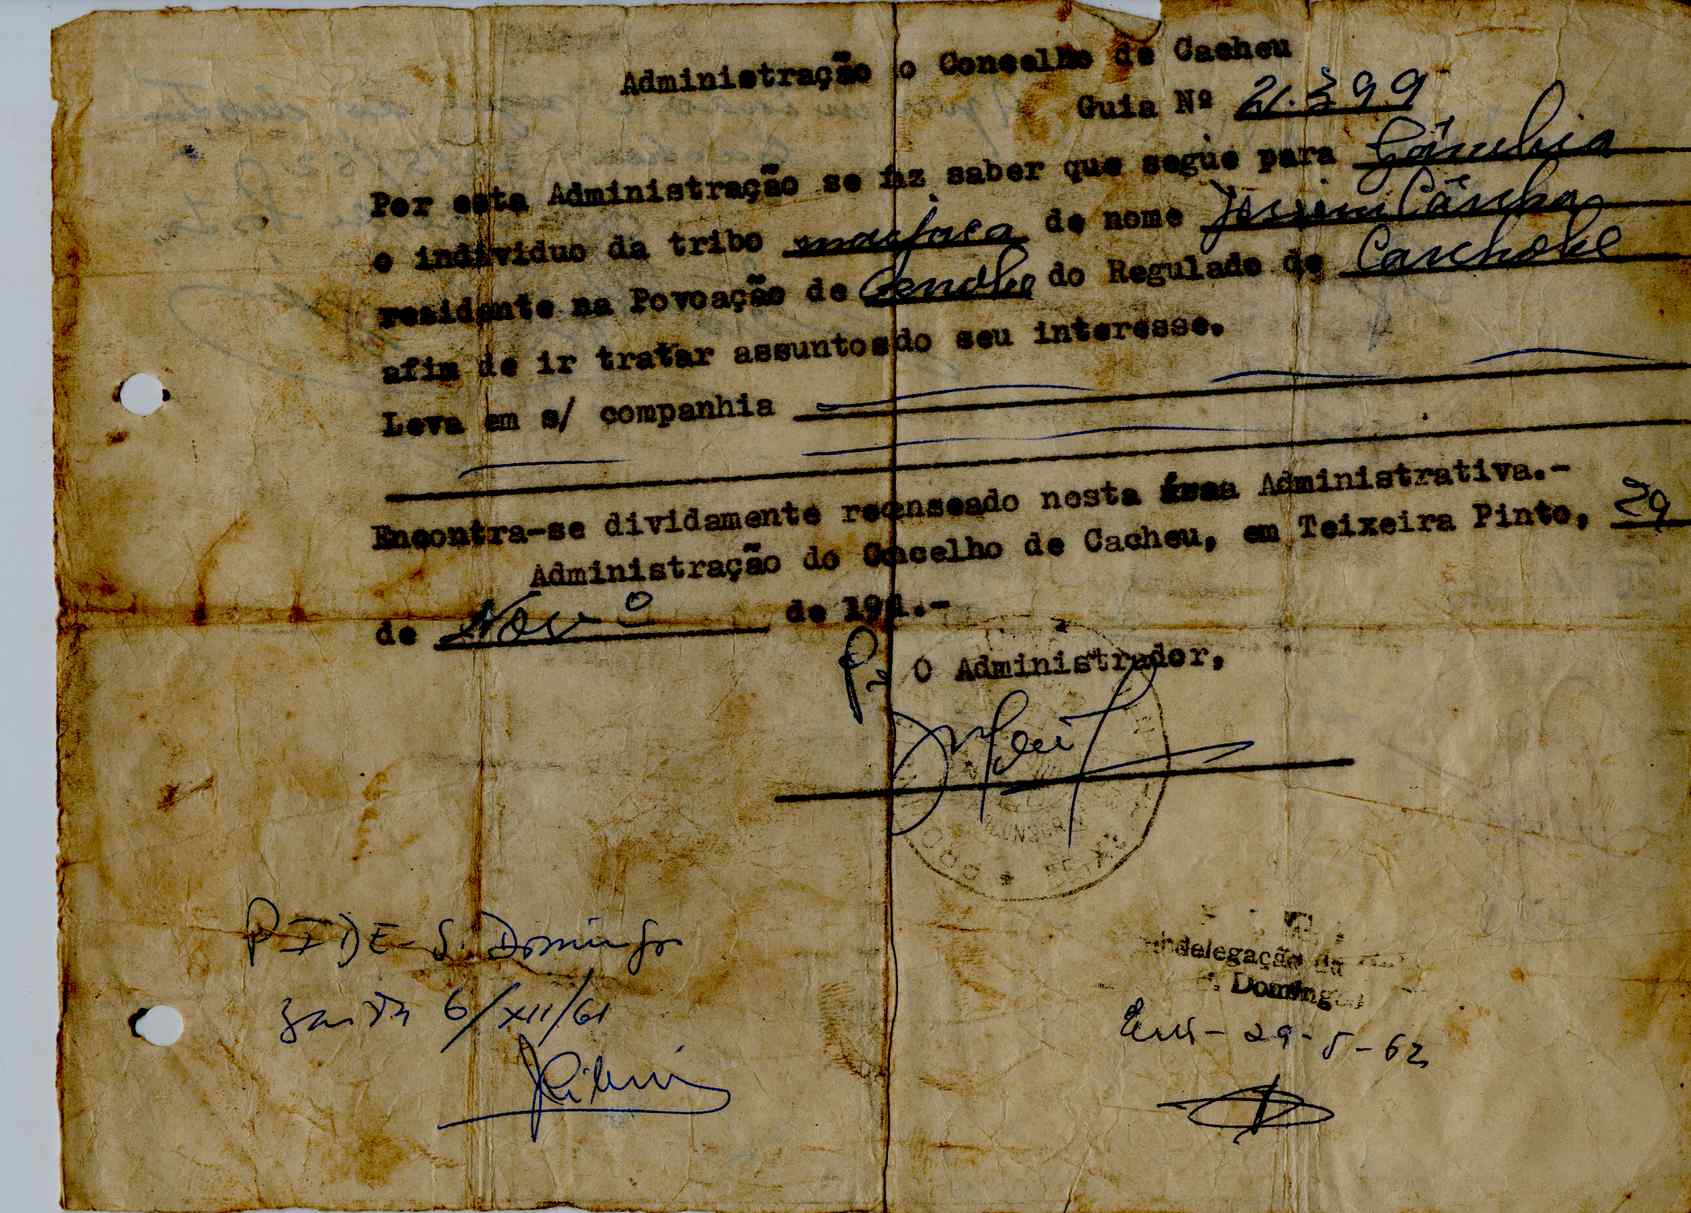 Administração o Concelho de Cacheu
Guia Nº 21.399
Por esta Administração se faz saber que segue para Gâmbia
o individuo da tribo manjaca de nome
residente na Povoação de do Regulado de
afim de ir tratar assuntos do seu interesse.
Leva em s/ companhia
Encontra-se dividamente recenseado nesta área Administrativa.-
Administração do Concelho de Cacheu, em Teixeira Pinto, 29
de Novº de 1961.-
O Administrador,
PIDE - S. Domingos
6/XII/61
delegação da
Domingo
29-5-62